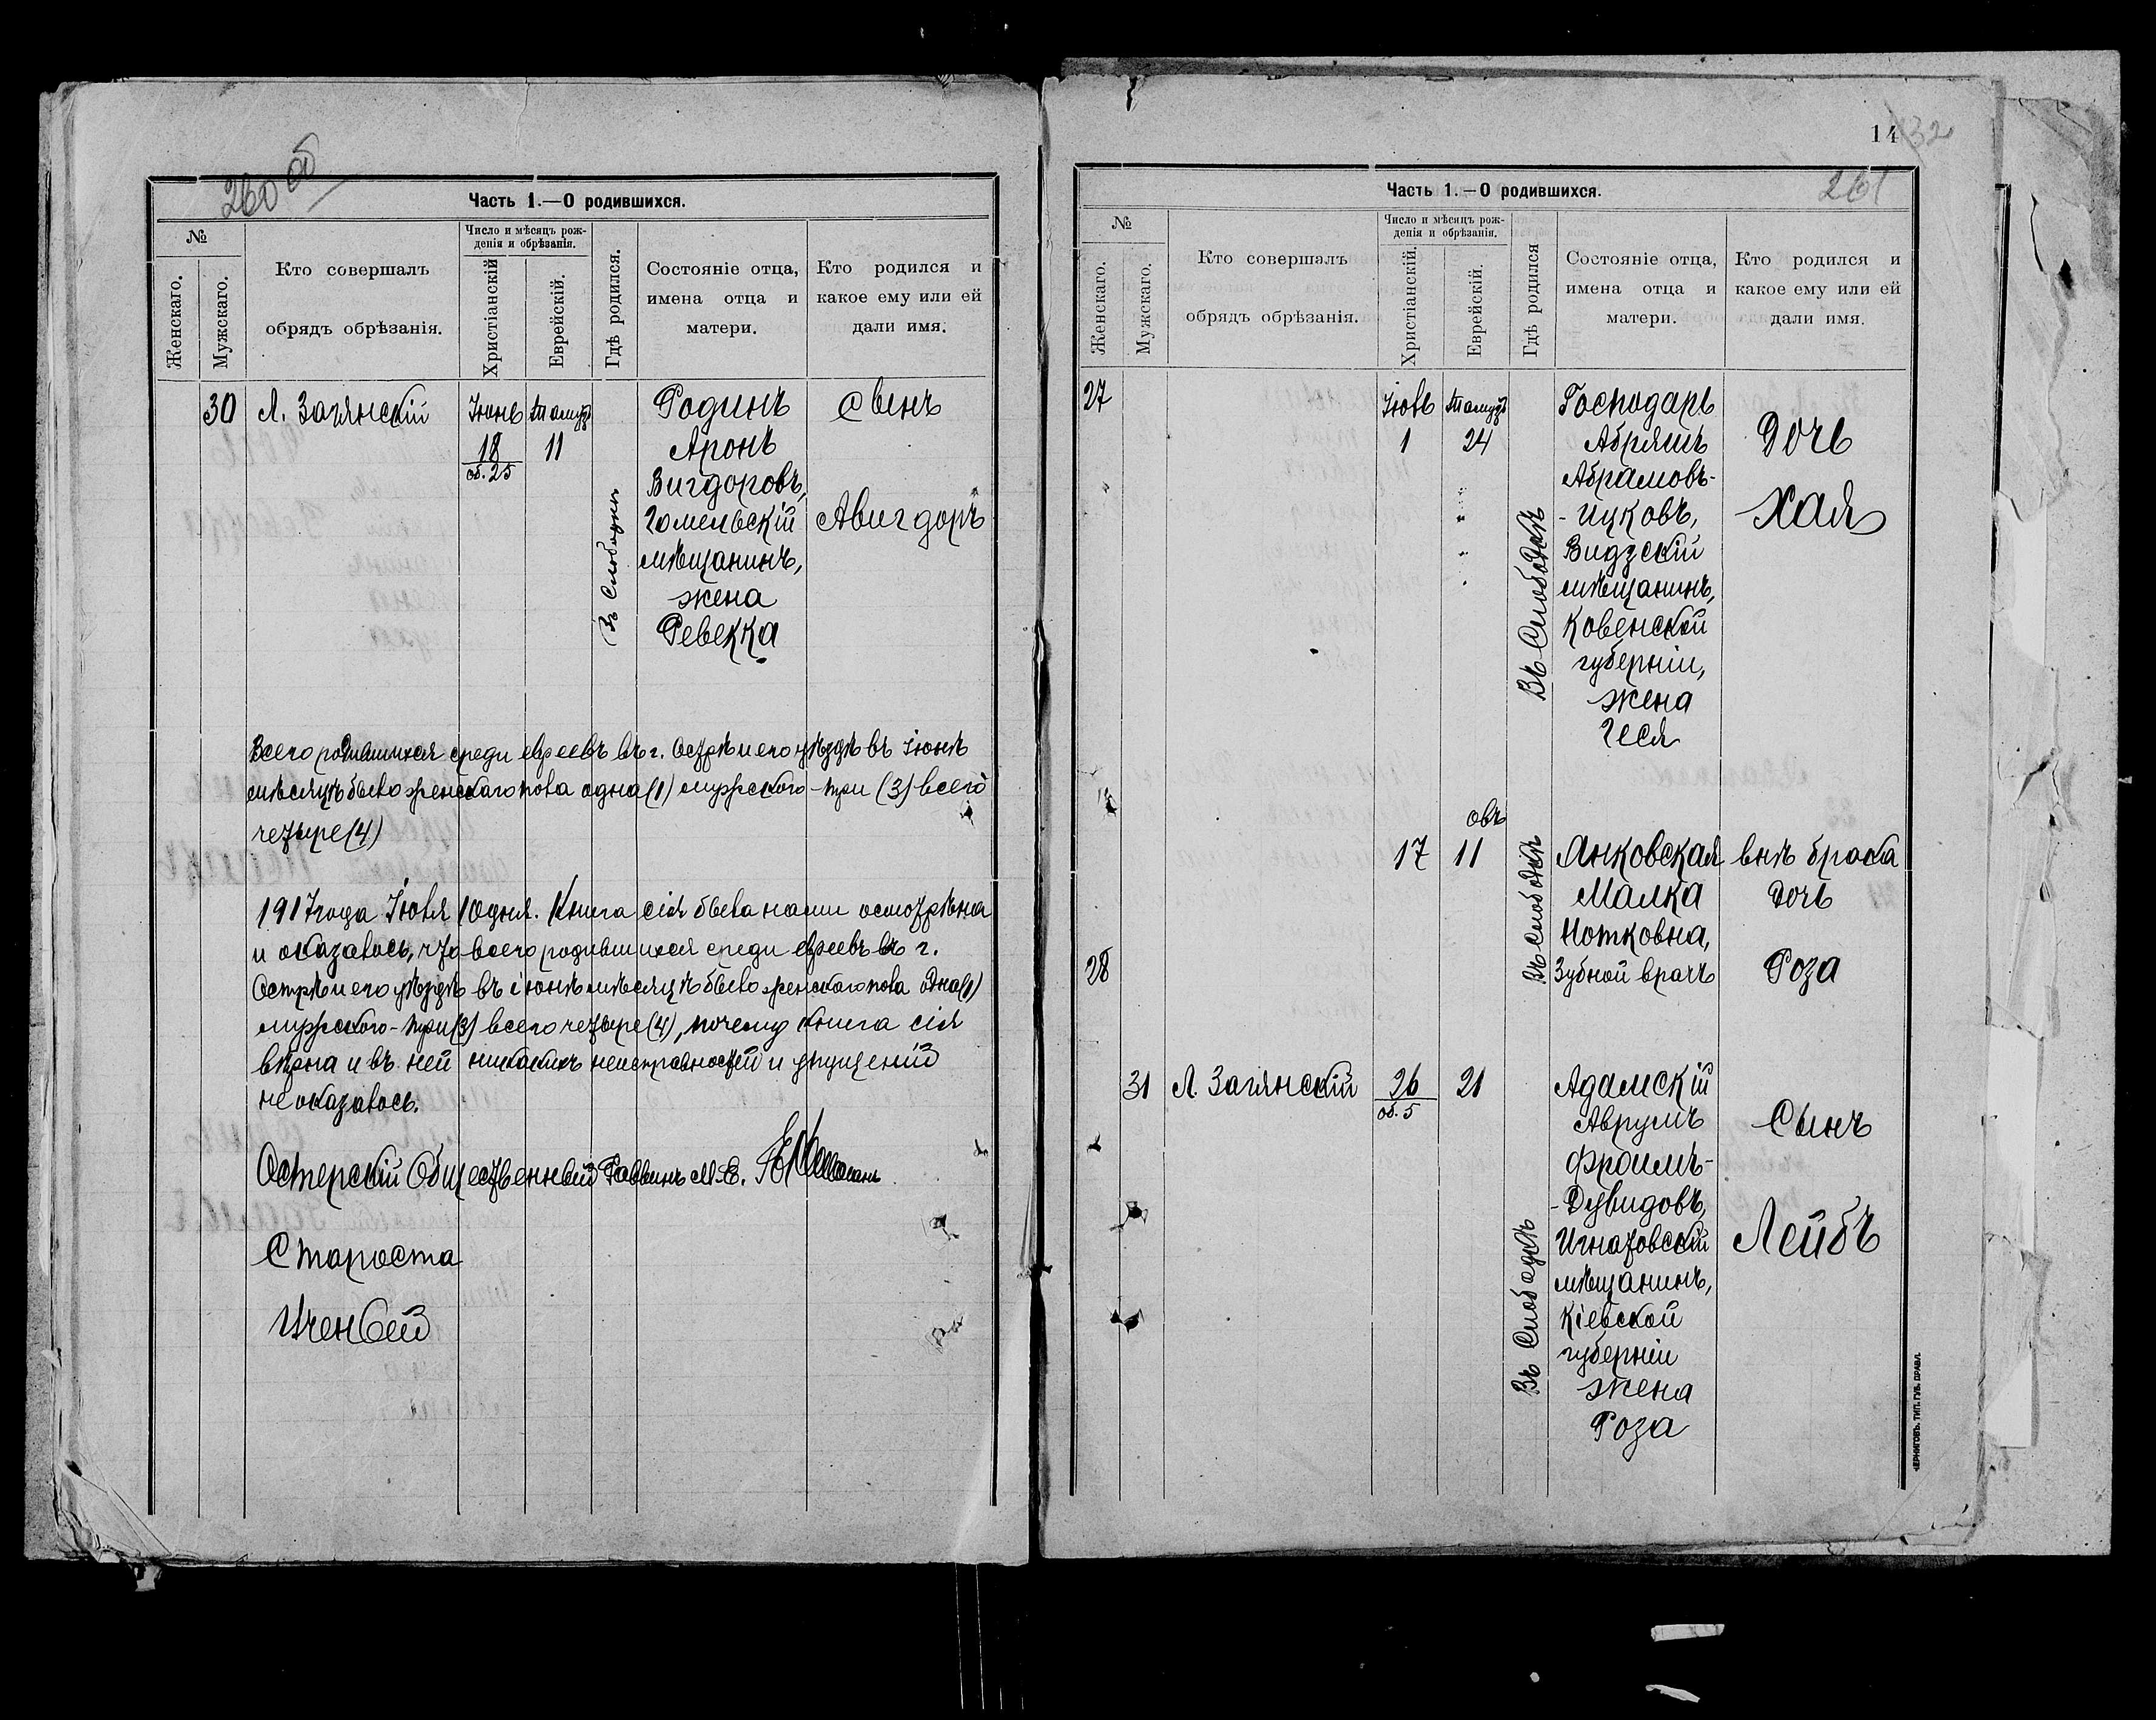 260 об
Часть 1.—О родившихся.
№
Женскаго.
Мужскаго.
Кто совершалъ
обрядъ обрѣзанія.
Число и мѣсяцъ рож-
денія и обрѣзанія.
Христіанскій
Еврейскій.
Гдѣ родился.
Состояніе отца,
имена отца и
матери.
Кто родился и
какое ему или ей
дали имя.
30 Л. Загянскій Іюнь Тамузъ Родинъ Сынъ
18 11 Аронъ
об. 25 Вигдоровъ,
Гомельскій Авигдоръ
мѣщанинъ,
жена
Ревекка
Въ Слободкѣ
Всего родившихся среди евреевъ въ г. Острѣ и его уѣздѣ въ Іюнѣ
мѣсяцѣ было женскаго пола одна (1) мужского - три (3) всего
четыре (4)
1917 года Іюля 10 дня. Книга сія была нами осмотрѣна
и оказалось, что всего родившихся среди евреевъ въ г.
Острѣ и его уѣздѣ въ іюнѣ мѣсяцѣ было женского пола одна (1)
мужского - три (3) всего четыре (4), почему книга сія
вѣрна и въ ней никакихъ неисправностей и упущеній
не оказалось.
Остерскій Общественный Раввинъ М. Е.
Староста
Ученый
14
32
261
Часть 1.—О родившихся.
№
Женскаго.
Мужскаго.
Кто совершалъ
обрядъ обрѣзанія.
Число и мѣсяцъ рож-
денія и обрѣзанія.
Христіанскій.
Еврейскій.
Гдѣ родился
Состояніе отца,
имена отца и
матери.
Кто родился и
какое ему или ей
дали имя.
27 Іюль Тамузъ Господарь
1 24 Абрамъ Дочь
Абрамовъ-
-Ицковъ, Хая
Видзскій
мѣщанинъ,
Ковенской
губерніи,
жена
Геся
Въ Слободкѣ
овъ
17 11 Янковская внѣ брака
Малка Дочь
Нотковна,
28 Зубной врачъ Роза
Въ Слободкѣ
31 Л. Загянскій 26 21 Адамскій
об. 5 Аврумъ Сынъ
Фроимъ-
-Дувидовъ,
Игнатовскій Лейбъ
мѣщанинъ,
Кіевской
губерніи
жена
Роза
Въ Слободкѣ
ЧЕРНИГОВЪ. ТИП. ГУБ. ПРАВЛ.